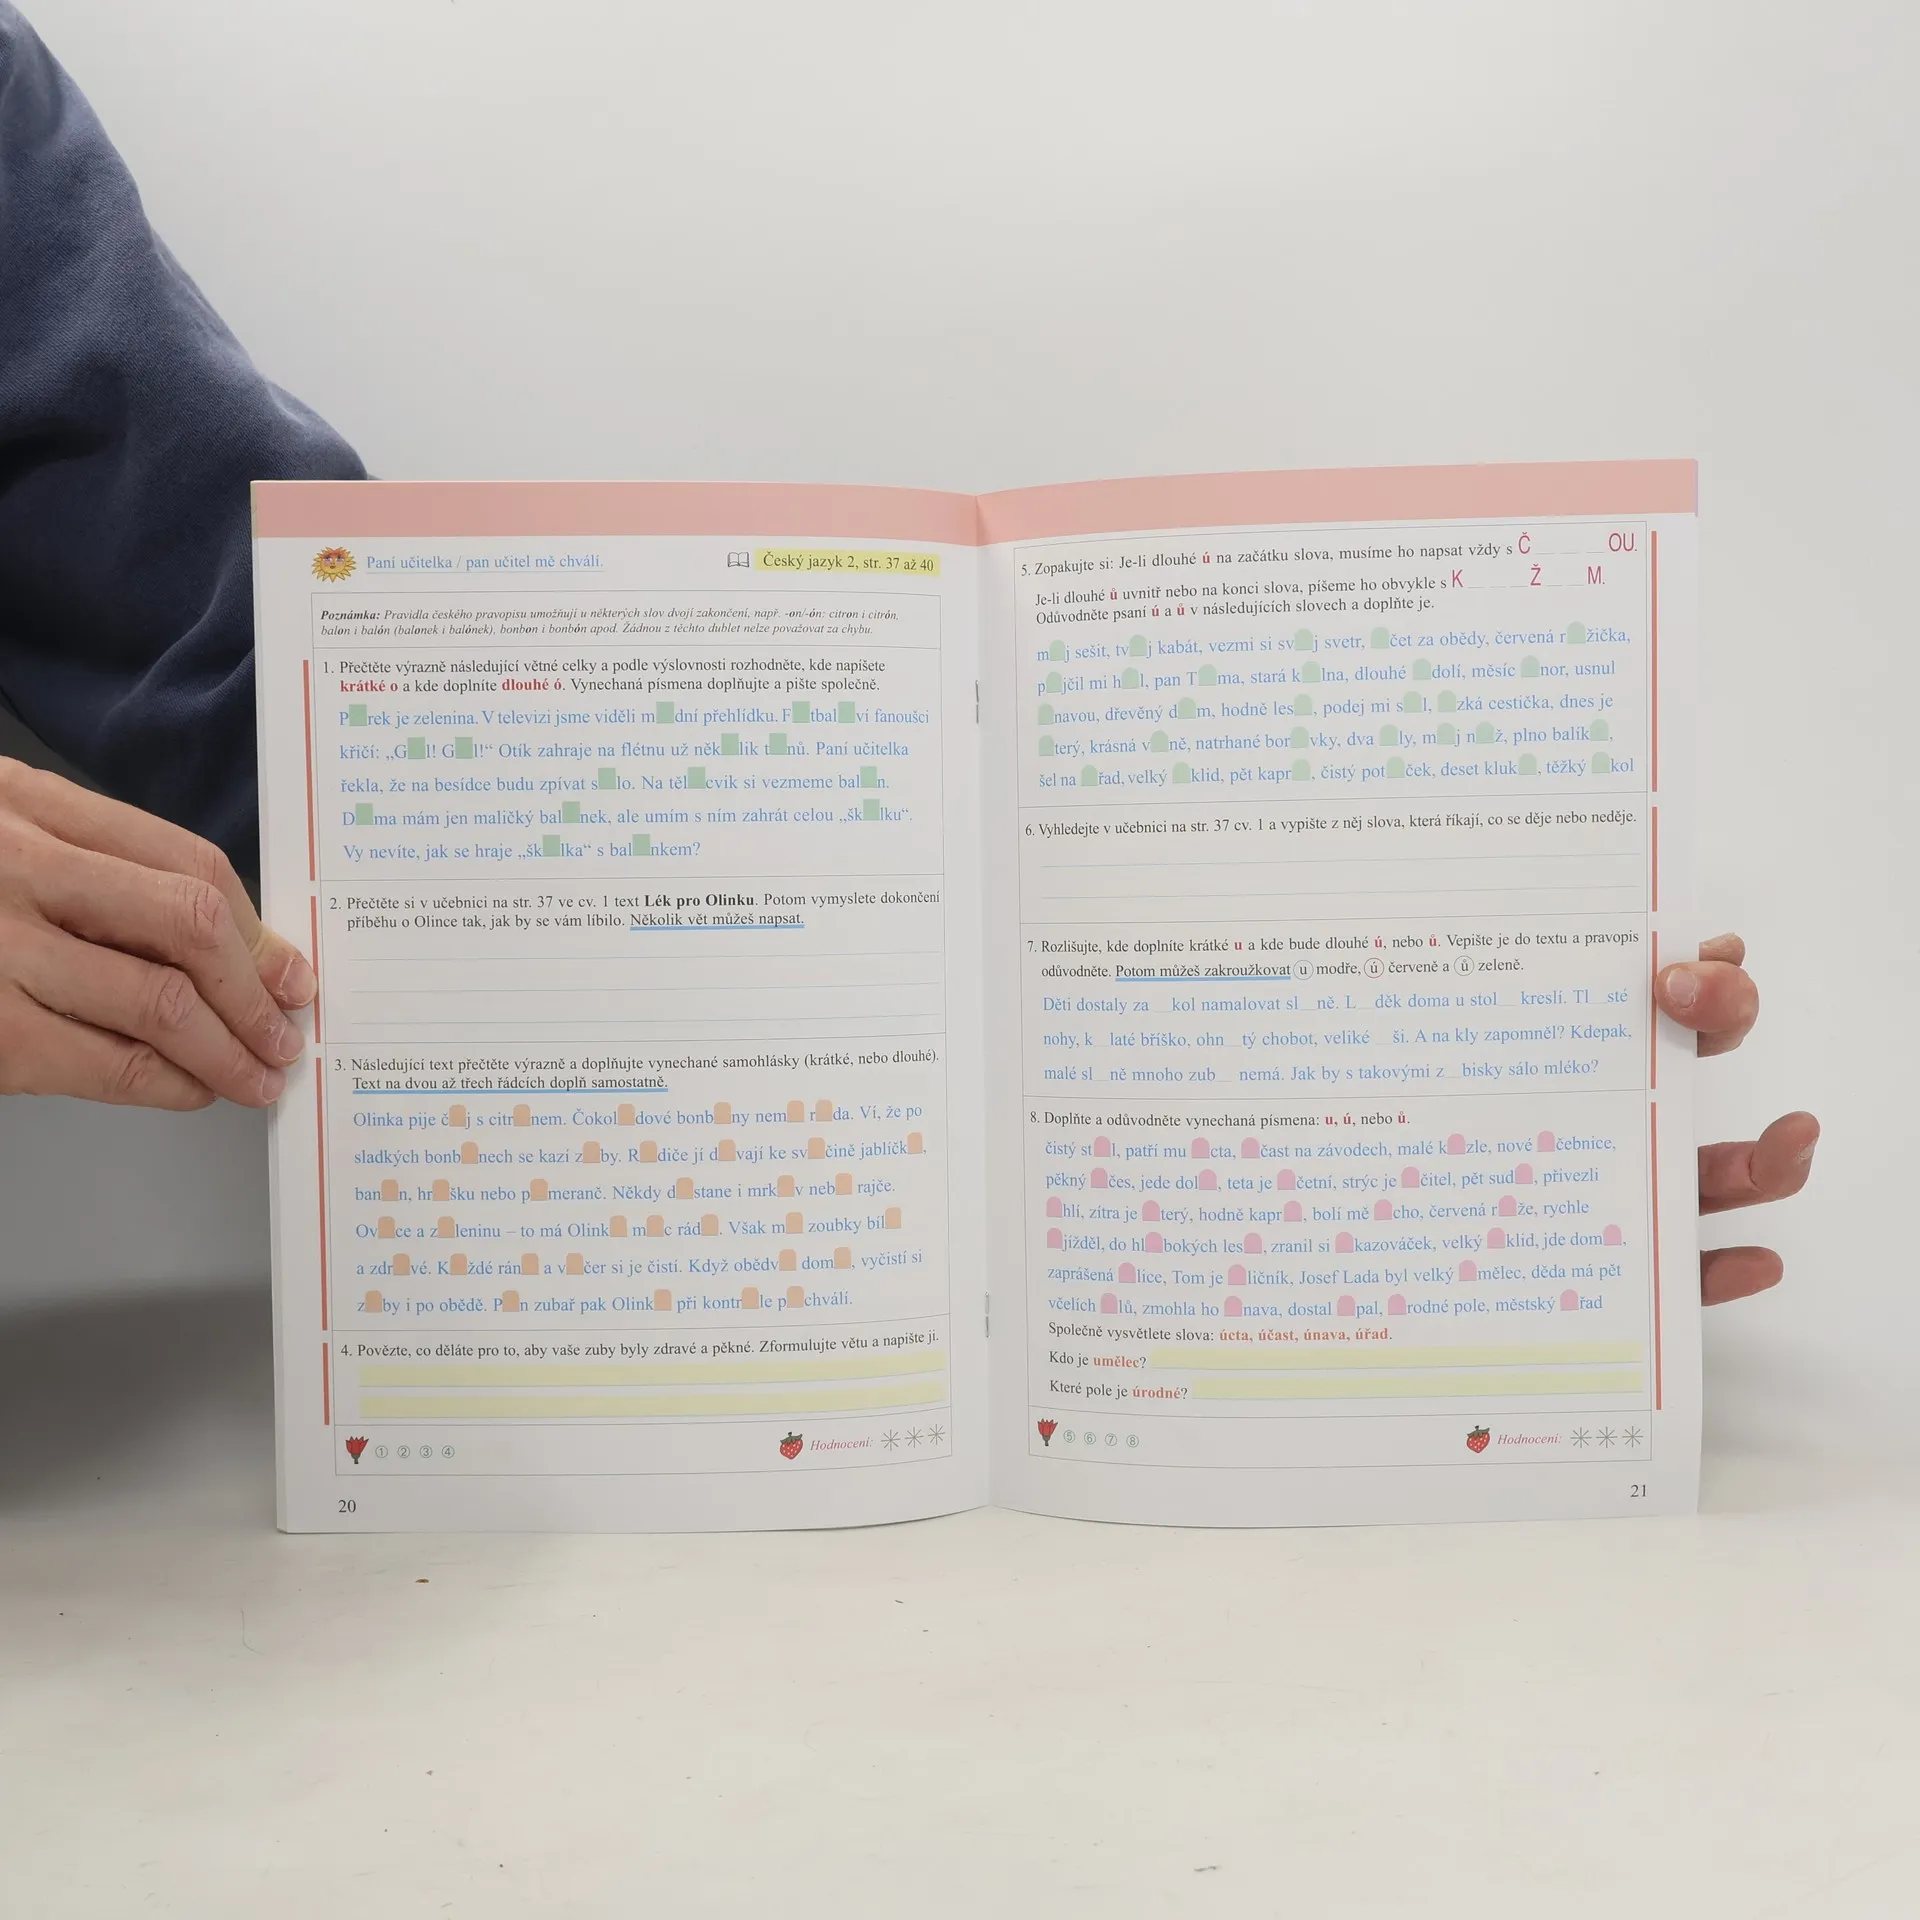 Paní učitelka / pan učitel mě chválí.
Český jazyk 2, str. 37 až 40
Poznámka: Pravidla českého pravopisu umožňují u některých slov dvojí zakončení, např. -on/-ón: citron i citrón,
balon i balón (balonek i balónek), bonbon i bonbón apod. Žádnou z těchto dublet nelze považovat za chybu.
1. Přečtěte výrazně následující větné celky a podle výslovnosti rozhodněte, kde napíšete
krátké o a kde doplníte dlouhé ó. Vynechaná písmena doplňujte a pište společně.
P rek je zelenina. V televizi jsme viděli m dní přehlídku. F tbal vi fanoušci
křičí: „G l! G l!“ Otík zahraje na flétnu už něk lik t nů. Paní učitelka
řekla, že na besídce budu zpívat s lo. Na těl cvik si vezmeme bal n.
D ma mám jen maličký bal nek, ale umím s ním zahrát celou „šk lku“.
Vy nevíte, jak se hraje „šk lka“ s bal nkem?
2. Přečtěte si v učebnici na str. 37 ve cv. 1 text Lék pro Olinku. Potom vymyslete dokončení
příběhu o Olince tak, jak by se vám líbilo. Několik vět můžeš napsat.
3. Následující text přečtěte výrazně a doplňujte vynechané samohlásky (krátké, nebo dlouhé).
Text na dvou až třech řádcích doplň samostatně.
Olinka pije č j s citr nem. Čokol dové bonb ny nem r da. Ví, že po
sladkých bonb nech se kazí z by. R diče jí d vají ke sv čině jablíčk ,
ban n, hr šku nebo p meranč. Někdy d stane i mrk v neb rajče.
Ov ce a z leninu – to má Olink m c rád . Však m zoubky bíl
a zdr vé. K ždé rán a v čer si je čistí. Když obědv dom , vyčistí si
z by i po obědě. P n zubař pak Olink při kontr le p chválí.
4. Povězte, co děláte pro to, aby vaše zuby byly zdravé a pěkné. Zformulujte větu a napište ji.
① ② ③ ④
Hodnocení:
20
5. Zopakujte si: Je-li dlouhé ú na začátku slova, musíme ho napsat vždy s Č _ _ OU.
Je-li dlouhé ů uvnitř nebo na konci slova, píšeme ho obvykle s K _ _ Ž _ M.
Odůvodněte psaní ú a ů v následujících slovech a doplňte je.
m j sešit, tv j kabát, vezmi si sv j svetr, čet za obědy, červená r žička,
p jčil mi h l, pan T ma, stará k lna, dlouhé dolí, měsíc nor, usnul
navou, dřevěný d m, hodně les , podej mi s l, zká cestička, dnes je
terý, krásná v ně, natrhané bor vky, dva ly, m j n ž, plno balík ,
šel na řad, velký klid, pět kapr , čistý pot ček, deset kluk , těžký kol
6. Vyhledejte v učebnici na str. 37 cv. 1 a vypište z něj slova, která říkají, co se děje nebo neděje.
7. Rozlišujte, kde doplníte krátké u a kde bude dlouhé ú, nebo ů. Vepište je do textu a pravopis
odůvodněte. Potom můžeš zakroužkovat u modře, ú červeně a ů zeleně.
Děti dostaly za _ kol namalovat sl _ ně. L _ děk doma u stol _ kreslí. Tl _ sté
nohy, k _ laté bříško, ohn _ tý chobot, veliké _ ši. A na kly zapomněl? Kdepak,
malé sl _ ně mnoho zub _ nemá. Jak by s takovými z _ bisky sálo mléko?
8. Doplňte a odůvodněte vynechaná písmena: u, ú, nebo ů.
čistý st l, patří mu cta, čast na závodech, malé k zle, nové čebnice,
pěkný čes, jede dol , teta je četní, strýc je čitel, pět sud , přivezli
hlí, zítra je terý, hodně kapr , bolí mě cho, červená r že, rychle
jížděl, do hl bokých les , zranil si kazováček, velký klid, jde dom ,
zaprášená lice, Tom je ličník, Josef Lada byl velký mělec, děda má pět
včelích lů, zmohla ho nava, dostal pal, rodné pole, městský řad
Společně vysvětlete slova: úcta, účast, únava, úřad.
Kdo je umělec?
Které pole je úrodné?
⑤ ⑥ ⑦ ⑧
Hodnocení:
21